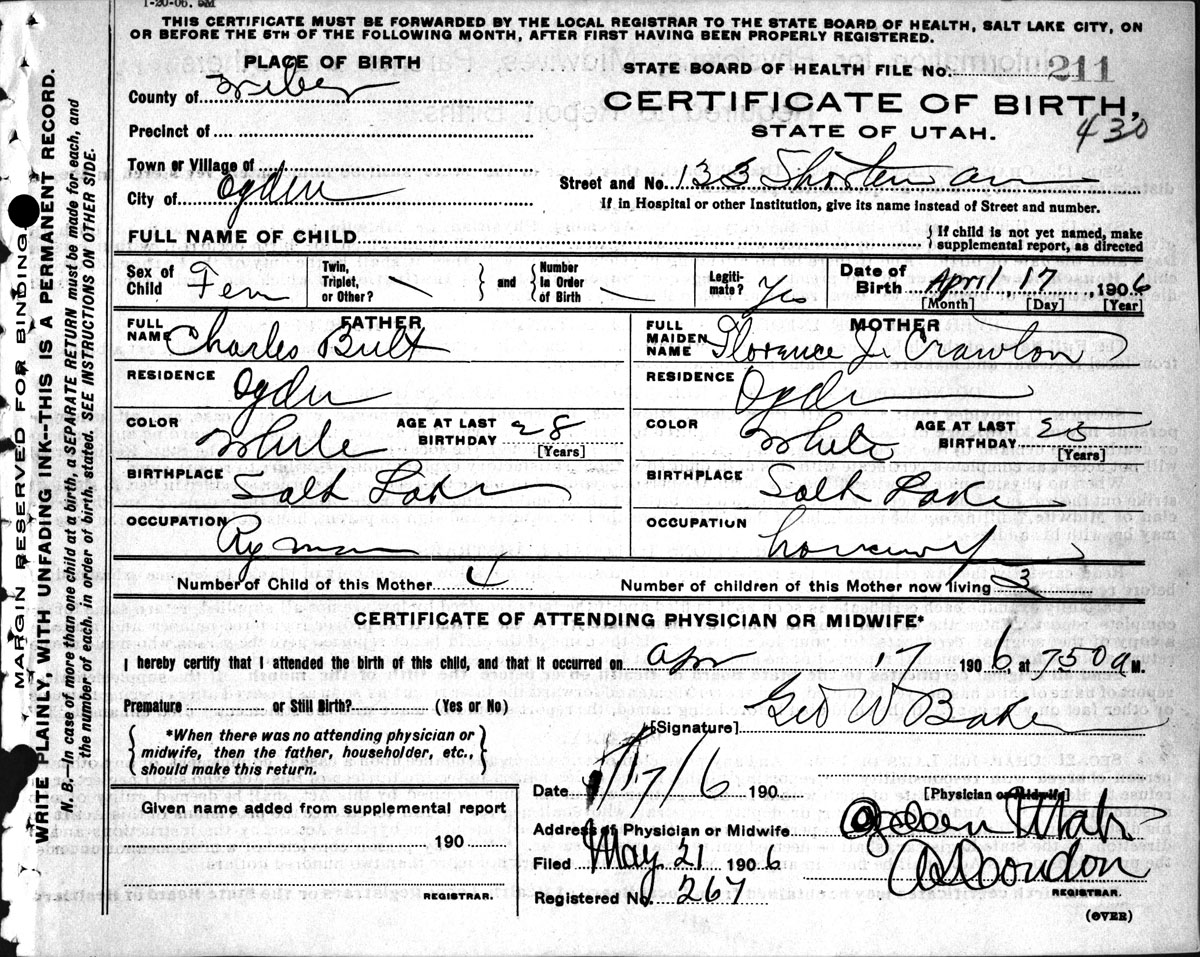 1-20-06. 5M
THIS CERTIFICATE MUST BE FORWARDED BY THE LOCAL REGISTRAR TO THE STATE BOARD OF HEALTH, SALT LAKE CITY, ON
OR BEFORE THE 5TH OF THE FOLLOWING MONTH, AFTER FIRST HAVING BEEN PROPERLY REGISTERED.
MARGIN RESERVED FOR BINDING.
WRITE PLAINLY, WITH UNFADING INK--THIS IS A PERMANENT RECORD.
N. B.—In case of more than one child at a birth, a SEPARATE RETURN must be made for each, and
the number of each, in order of birth, stated. SEE INSTRUCTIONS ON OTHER SIDE.
PLACE OF BIRTH
STATE BOARD OF HEALTH FILE NO. 211
County of Weber
CERTIFICATE OF BIRTH,
STATE OF UTAH.
430
Precinct of
Town or Village of
City of Ogden
Street and No. 133
If in Hospital or other Institution, give its name instead of Street and number.
FULL NAME OF CHILD
{If child is not yet named, make
supplemental report, as directed
Sex of Child Fem
Twin, Triplet, or Other? \
} and { Number In Order of Birth \
Legitimate? Yes
Date of Birth April 17, 1906
[Month] [Day] [Year]
FATHER
FULL NAME Charles Bult
RESIDENCE Ogden
COLOR White
AGE AT LAST BIRTHDAY 28
[Years]
BIRTHPLACE Salt Lake
OCCUPATION Ry man
MOTHER
FULL MAIDEN NAME Florence J.
RESIDENCE Ogden
COLOR White
AGE AT LAST BIRTHDAY
[Years]
BIRTHPLACE Salt Lake
OCCUPATION
Number of Child of this Mother 4
Number of children of this Mother now living 3
CERTIFICATE OF ATTENDING PHYSICIAN OR MIDWIFE*
I hereby certify that I attended the birth of this child, and that it occurred on Apr 17 1906 at 750 a M.
Premature? or Still Birth? (Yes or No)
Geo W Baker
[Signature]
{ *When there was no attending physician or
midwife, then the father, householder, etc.,
should make this return. }
Date 4/17/6 190
[Physician or Midwife
Given name added from supplemental report
190
REGISTRAR.
Address of Physician or Midwife Ogden Utah
Filed May 21 1906
Registered No. 267
REGISTRAR.
(OVER)